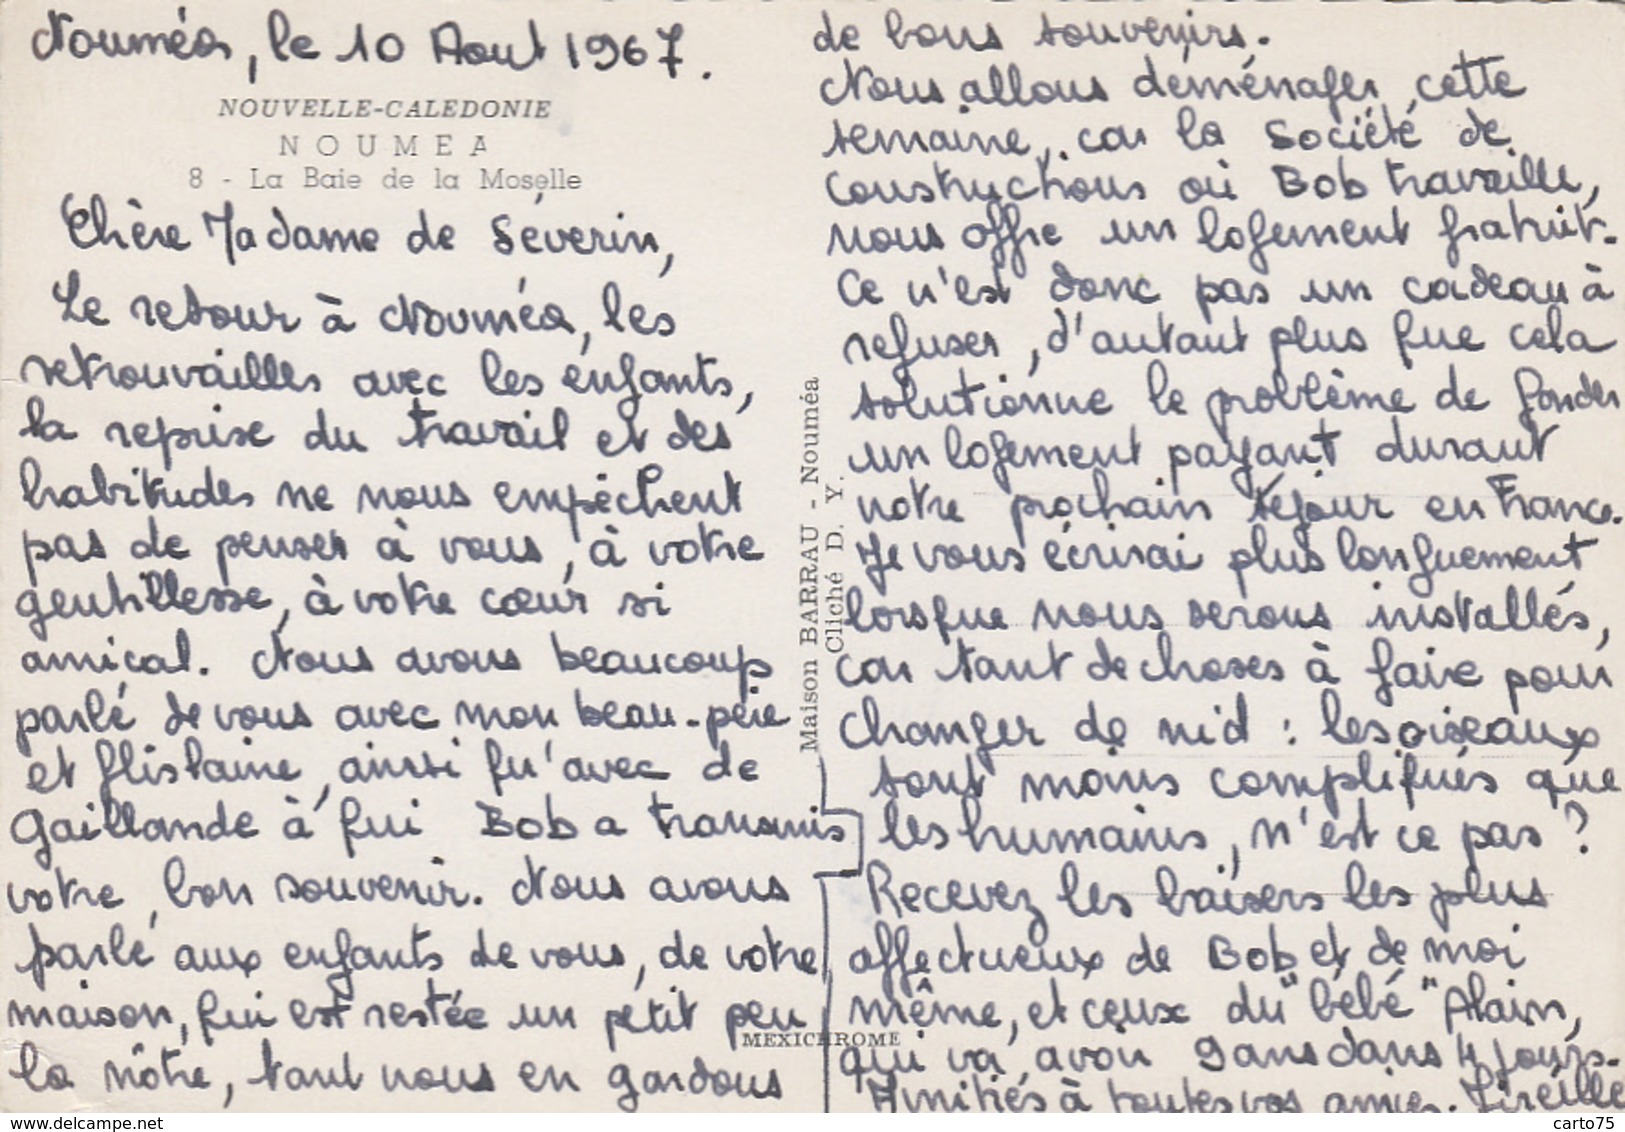 Nouméa, le 10 Aout 1967.
NOUVELLE-CALEDONIE
NOUMEA
8 - La Baie de la Moselle
Chère Madame de Séverin,
Le retour à Nouméa, les
retrouvailles avec les enfants,
la reprise du travail et des
habitudes ne nous empêchent
pas de penser à vous, à votre
gentillesse, à votre cœur si
amical. Nous avons beaucoup
parlé de vous avec mon beau-père
et Ghislaine, ainsi qu'avec de
Gaillande à qui Bob a transmis
votre bon souvenir. Nous avons
parlé aux enfants de vous, de votre
maison, qui est restée un petit peu
la nôtre, tant nous en gardons
Maison BARRAU - Nouméa
Cliché D. Y.
MEXICHROME
de bons souvenirs.
Nous allons déménager cette
semaine, car la Société de
constructions où Bob travaille,
nous offre un logement gratuit.
Ce n'est donc pas un cadeau à
refuser, d'autant plus que cela
solutionne le problème de garder
un logement payant durant
notre prochain séjour en France.
Je vous écrirai plus longuement
lorsque nous serons installés,
car tant de choses à faire pour
changer de nid : les oiseaux
sont moins compliqués que
les humains, n'est ce pas ?
Recevez les baisers les plus
affectueux de Bob et de moi
même, et ceux du "bébé" Alain,
qui va avoir 9 ans dans 4 jours.
Amitiés à toutes vos amies. Mireille
carto75